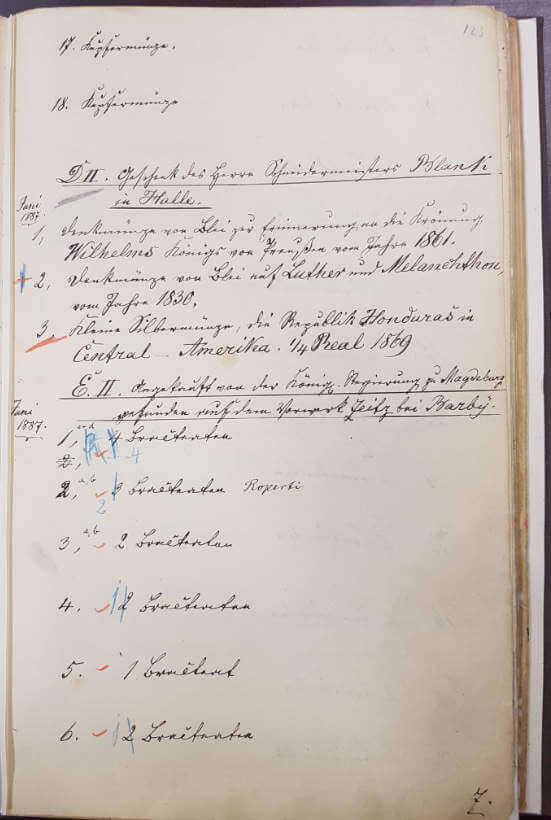 123
17. Kupfermünze.
18. Kupfermünze
D II. Geschenk des Herrn Schneidermeisters Blank
in Halle.
Juni
1887.
1, Denkmünze von Blei zur Erinnerung an die Krönung
Wilhelms Königs von Preußen vom Jahre 1861.
2, Denkmünze von Blei auf Luther und Melanchthon,
vom Jahre 1830.
3. Kleine Silbermünze, die Republik Honduras in
Central-Amerika. 1/4 Real 1869
E. II. Angekauft von der Königl. Regierung zu Magdeburg
gefunden auf dem Vorwerk Zeitz bei Barby.
Juni
1887.
1, a-d 4 Bracteaten
4
2, a,b Bracteaten
2
3, a,b 2 Bracteaten
4. 2 Bracteaten
5. 1 Bracteat
6. 2 Bracteaten
7.